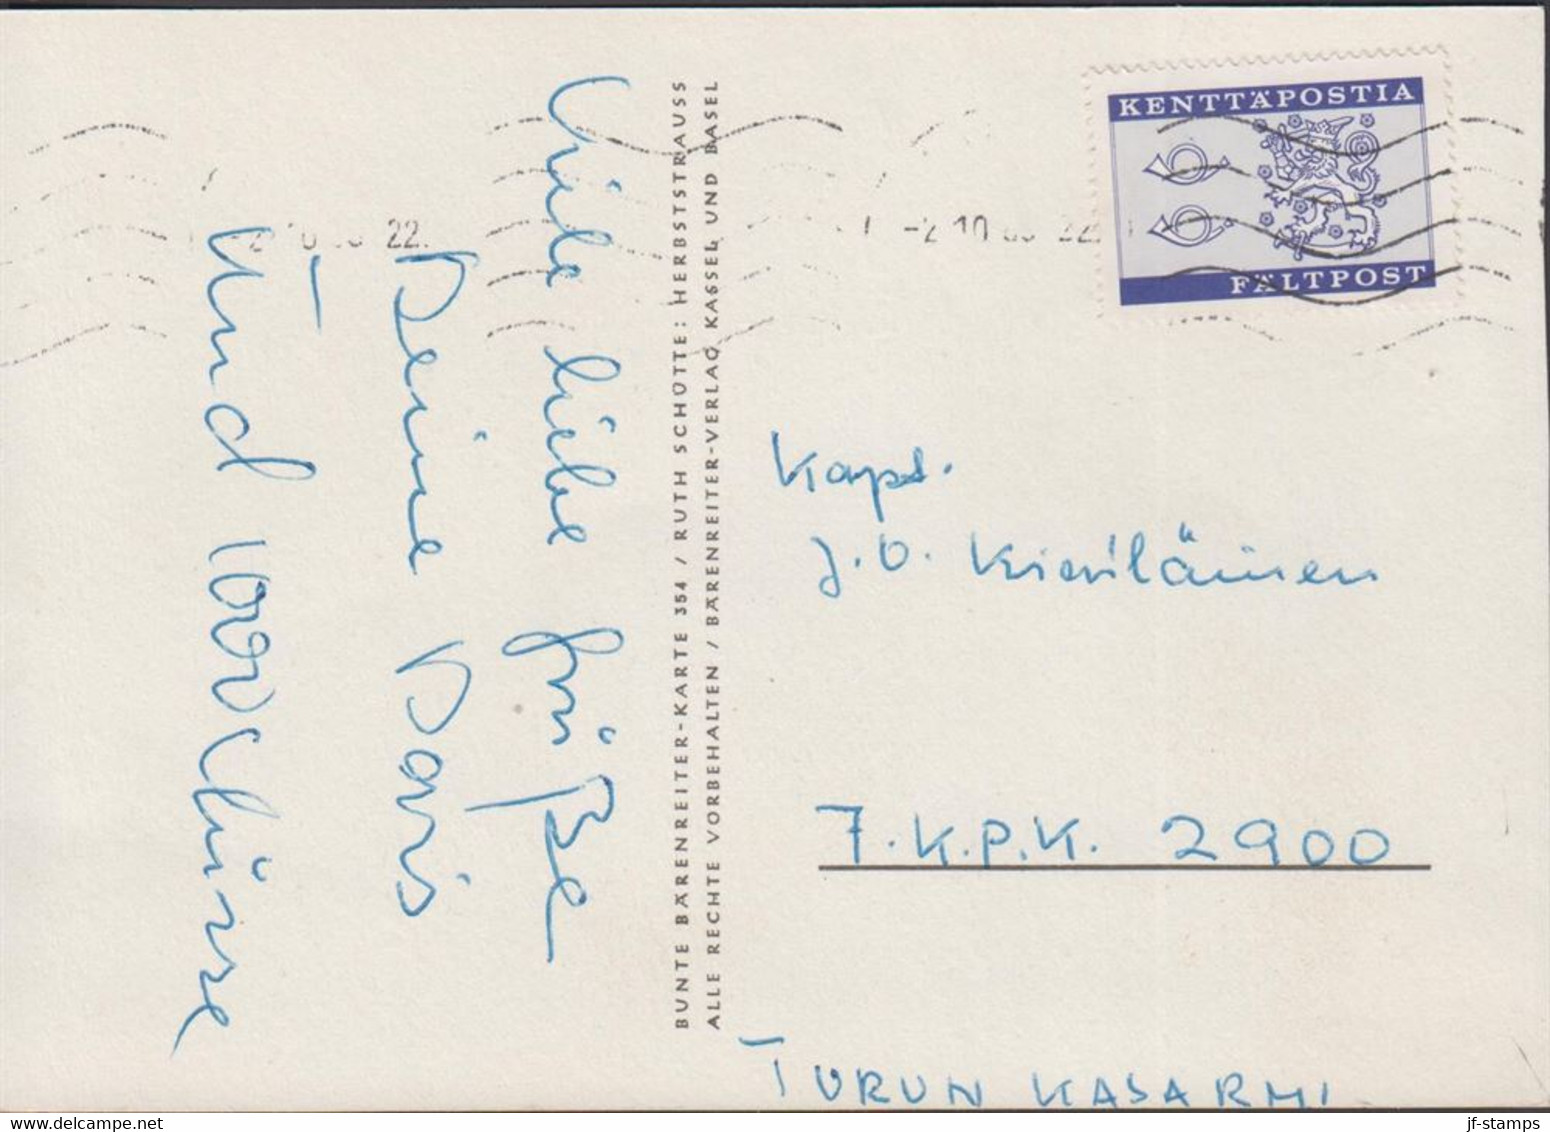 Viele liebe Grüße
Deine Doris
und
BUNTE BÄRENREITER-KARTE 354 / RUTH SCHÜTTE: HERBSTSTRAUSS
ALLE RECHTE VORBEHALTEN / BÄRENREITER-VERLAG KASSEL UND BASEL
KENTTÄPOSTIA
FÄLTPOST
-2.10 22
22
Kapt.
J.O. Kiviläinen
7.K.P.K. 2900
TURUN KASARMI
jf-stamps
www.delcampe.net